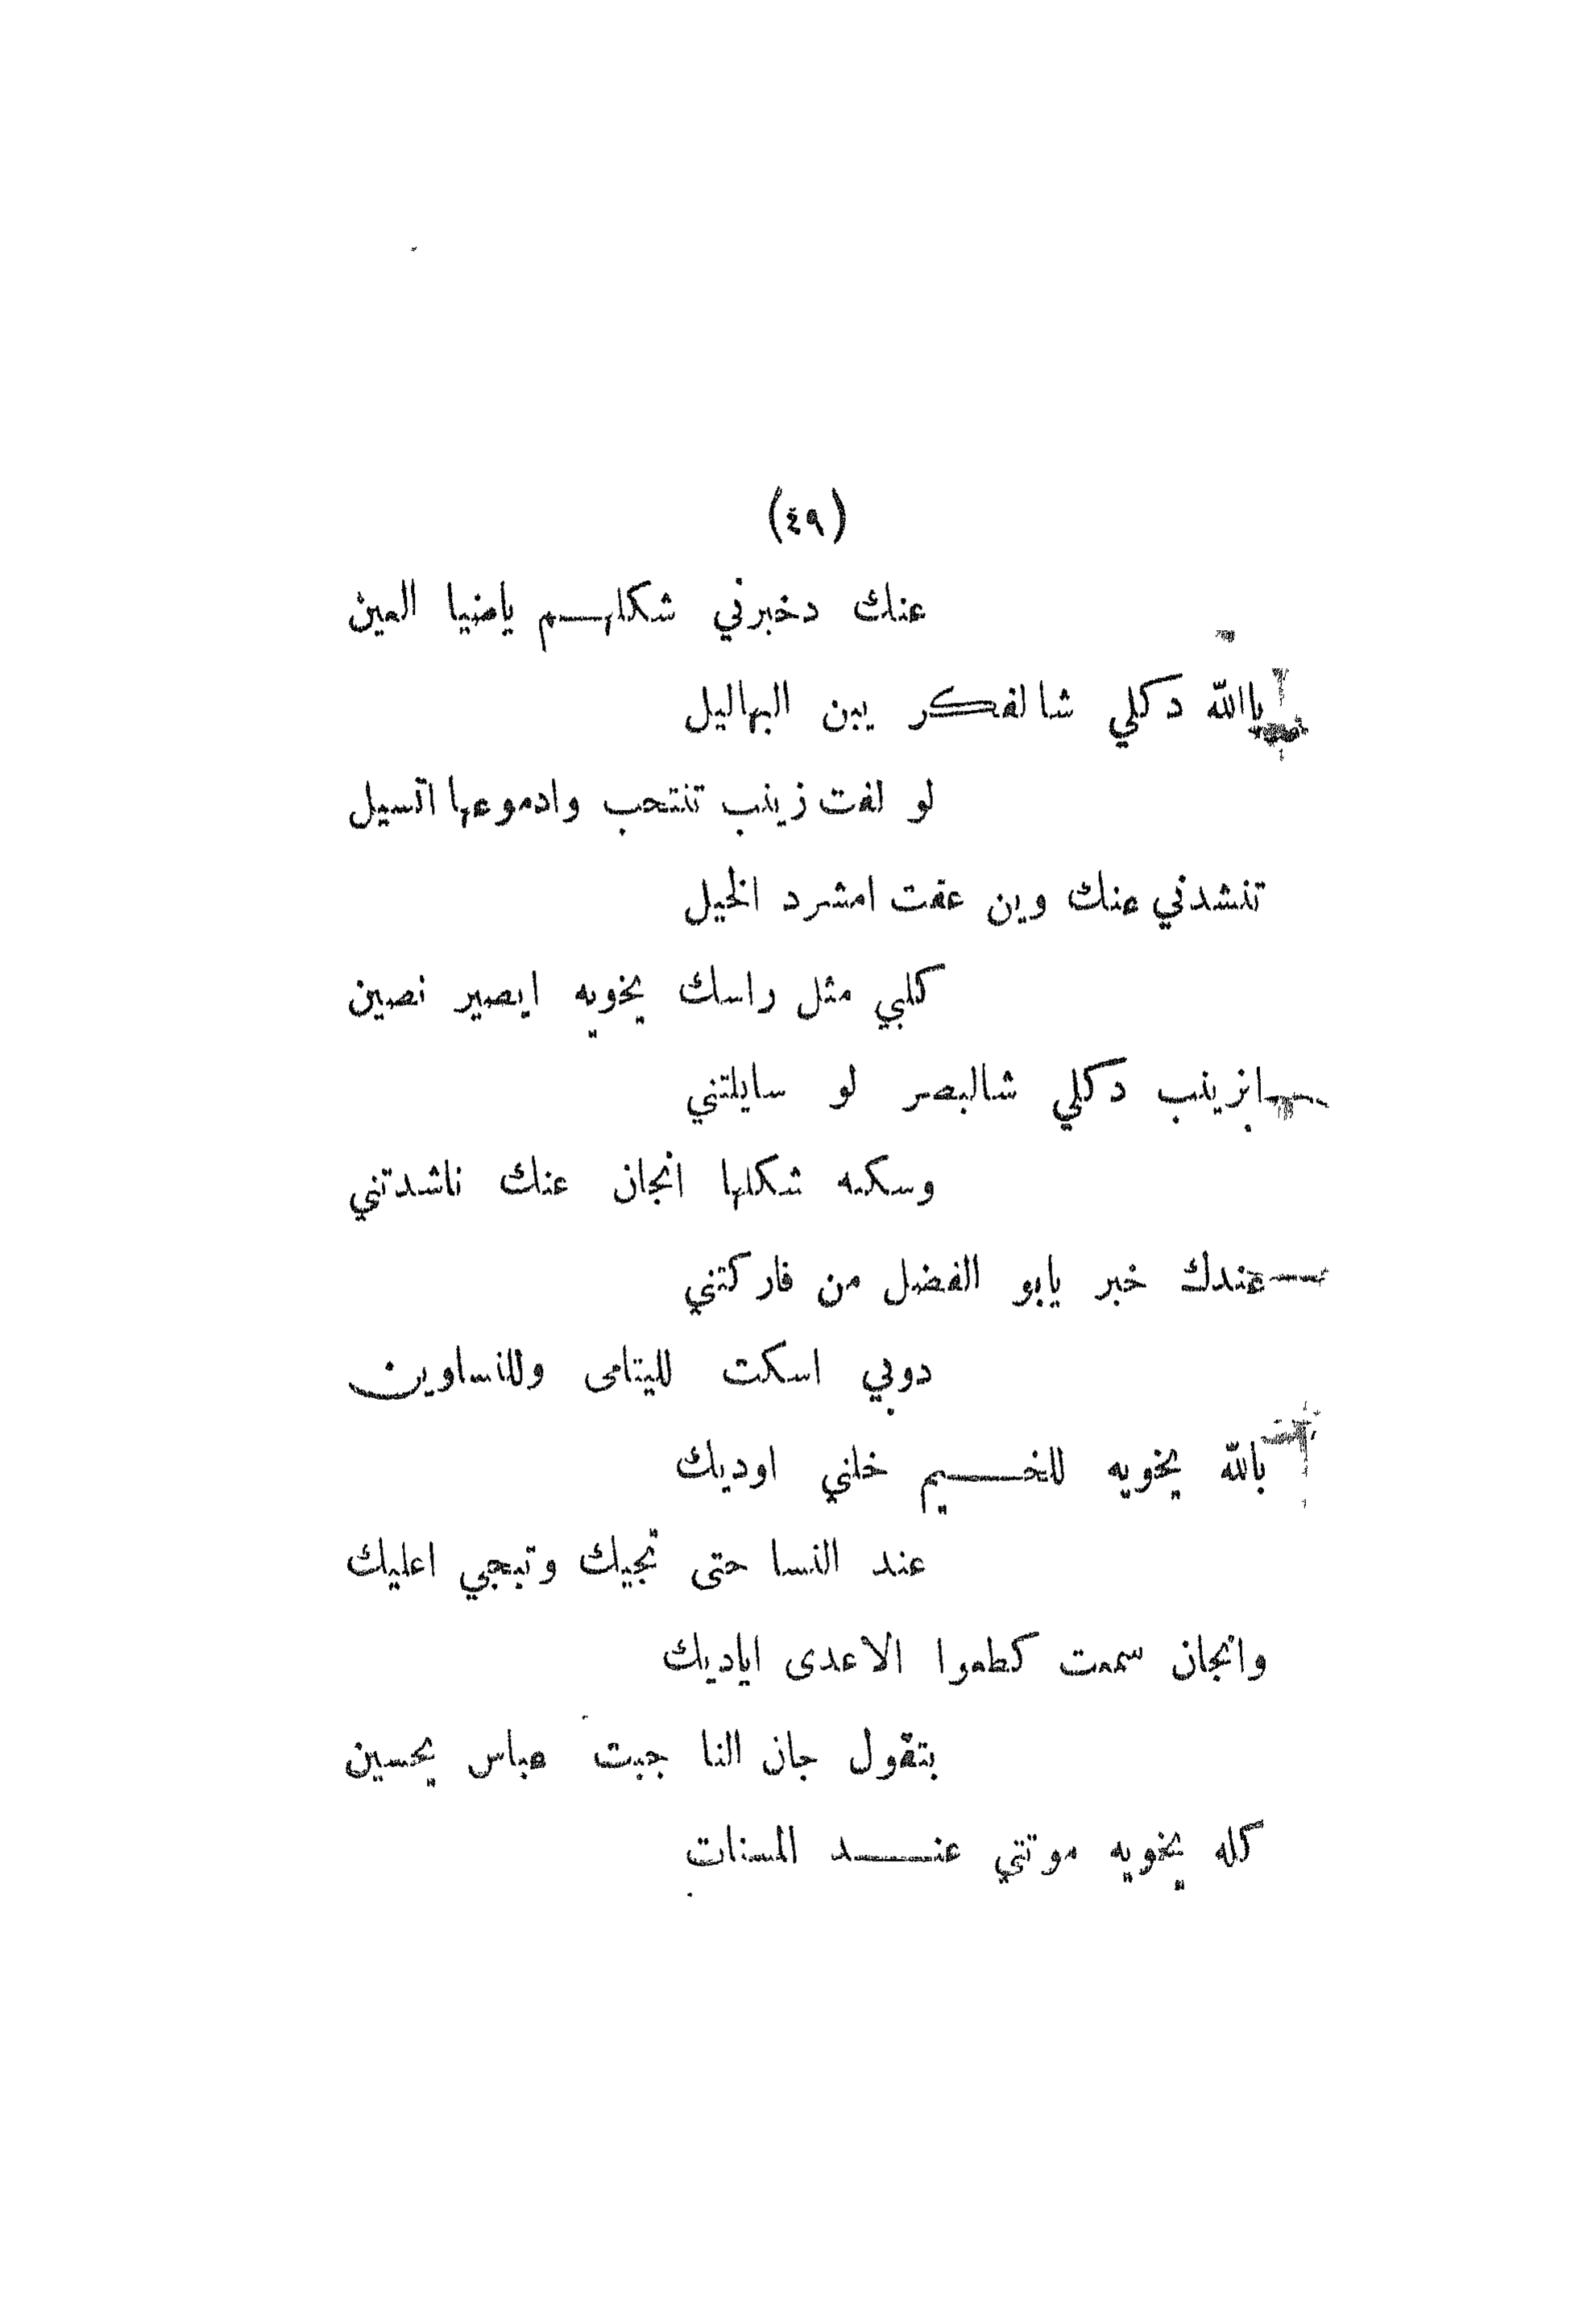 (٤٩)
عنك دخبرني شكلهـــم ياضيا العين
باالله دكلي شالفكر يبن البهاليل
لو لفت زينب تنتحب وادموعها اتسيل
تنشدني عنك وين عفت امشرد الخيل
كلبي مثل راسك يخويه ايصير نصين
ابزينب دكلي شالبصر لو سايلتني
وسكنه شكلها انجان عنك ناشدتني
عندك خبر يابو الفضل من فاركتني
دوبي اسكت لليتامى وللنساوين
بالله يخويه للخـــيم خلني اوديك
عند النسا حتى تجيك وتبجي اعليك
وانجان سمعت كطعوا الاعدى اياديك
بتقول جان النا جبت عباس يحسين
كله يخويه موتتي عنـــد المسنات